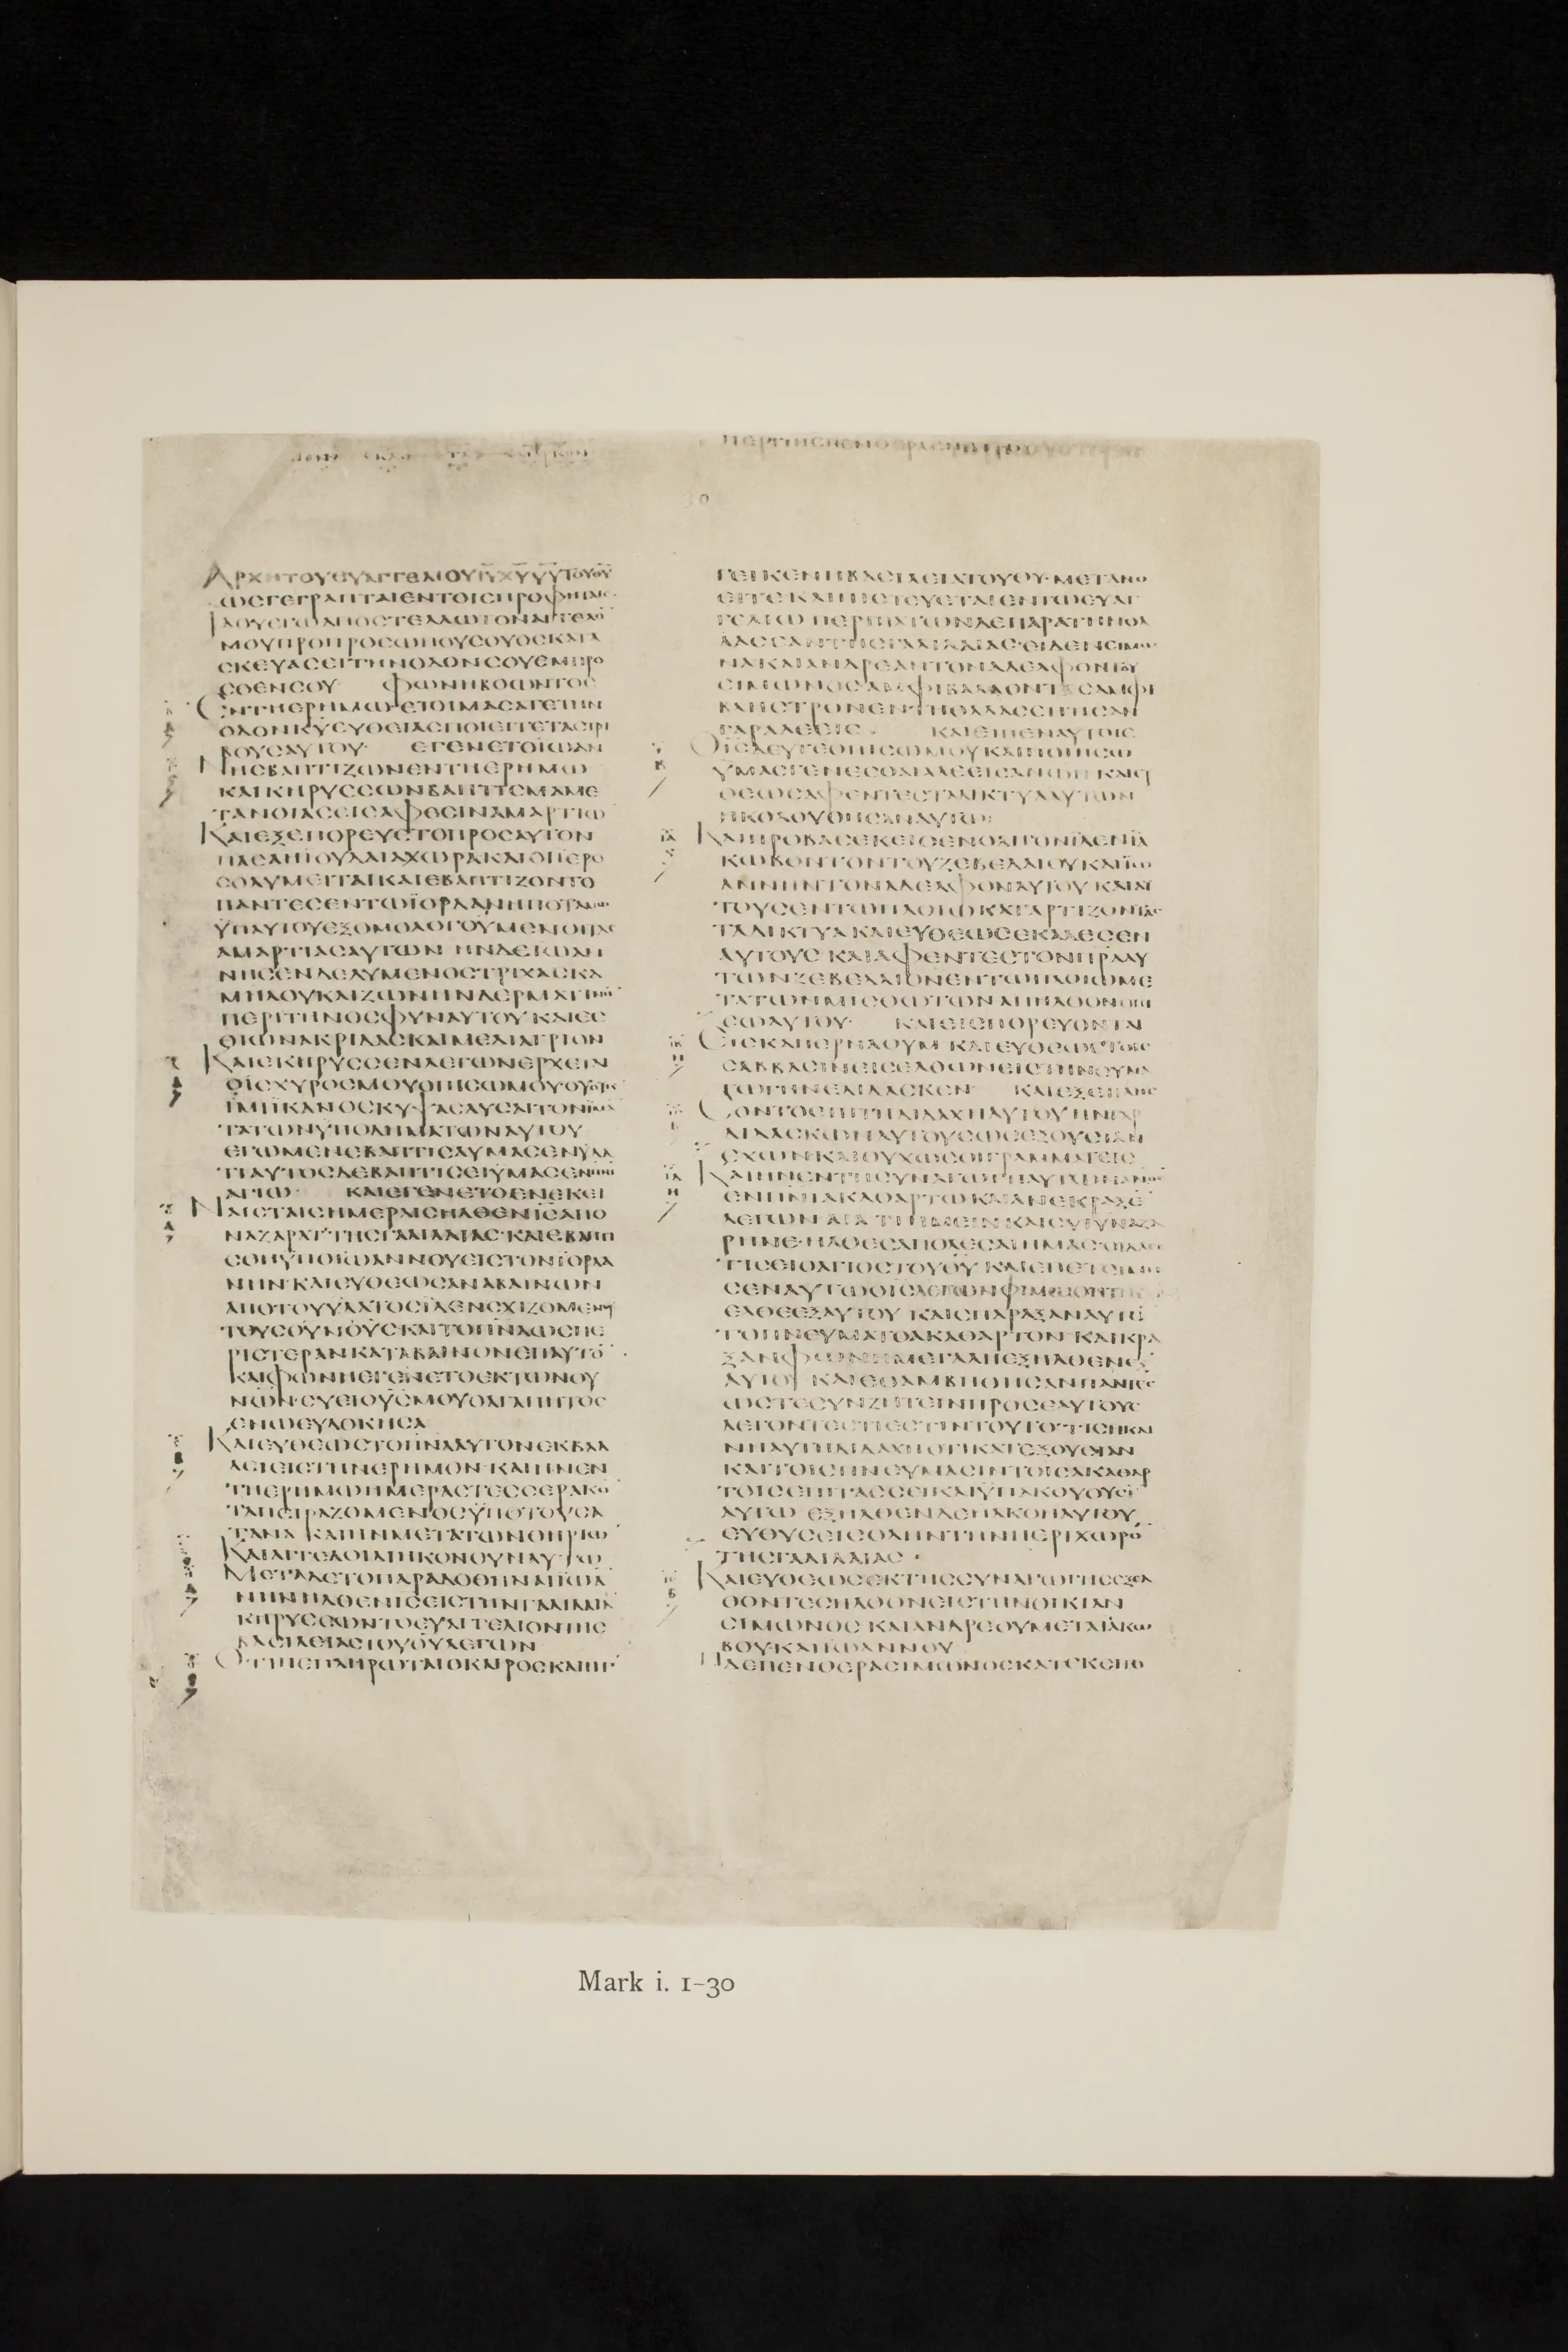 ΑΡΧΗΤΟΥΕΥΑΓΓΕΛΙΟΥΙΥΧΥΥΥΤΟΥΘΥ
ΩΣΓΕΓΡΑΠΤΑΙΕΝΤΟΙΣΠΡΟΦΗΤΑΙΣ
ΙΔΟΥΕΓΩΑΠΟΣΤΕΛΛΩΤΟΝΑΓΓΕΛΟ
ΜΟΥΠΡΟΠΡΟΣΩΠΟΥΣΟΥΟΣΚΑΤΑ
ΣΚΕΥΑΣΕΙΤΗΝΟΔΟΝΣΟΥΕΜΠΡΟ
ΣΘΕΝΣΟΥ ΦΩΝΗΒΟΩΝΤΟΣ
ΕΝΤΗΕΡΗΜΩΕΤΟΙΜΑΣΑΤΕΤΗΝ
ΟΔΟΝΚΥΕΥΘΕΙΑΣΠΟΙΕΙΤΕΤΑΣΤΡΙ
ΒΟΥΣΑΥΤΟΥ ΕΓΕΝΕΤΟΙΩΑΝ
ΝΗΣΒΑΠΤΙΖΩΝΕΝΤΗΕΡΗΜΩ
ΚΑΙΚΗΡΥΣΣΩΝΒΑΠΤΙΣΜΑΜΕ
ΤΑΝΟΙΑΣΕΙΣΑΦΕΣΙΝΑΜΑΡΤΙΩ
ΚΑΙΕΞΕΠΟΡΕΥΕΤΟΠΡΟΣΑΥΤΟΝ
ΠΑΣΑΗΙΟΥΔΑΙΑΧΩΡΑΚΑΙΟΙΙΕΡΟ
ΣΟΛΥΜΕΙΤΑΙΚΑΙΕΒΑΠΤΙΖΟΝΤΟ
ΠΑΝΤΕΣΕΝΤΩΙΟΡΔΑΝΗΠΟΤΑΜΩ
ΥΠΑΥΤΟΥΕΞΟΜΟΛΟΓΟΥΜΕΝΟΙΤΑΣ
ΑΜΑΡΤΙΑΣΑΥΤΩΝ ΗΝΔΕΙΩΑΝ
ΝΗΣΕΝΔΕΔΥΜΕΝΟΣΤΡΙΧΑΣΚΑ
ΜΗΛΟΥΚΑΙΖΩΝΗΝΔΕΡΜΑΤΙΝΗΝ
ΠΕΡΙΤΗΝΟΣΦΥΝΑΥΤΟΥΚΑΙΕΣ
ΘΙΩΝΑΚΡΙΔΑΣΚΑΙΜΕΛΙΑΓΡΙΟΝ
ΚΑΙΕΚΗΡΥΣΣΕΝΛΕΓΩΝΕΡΧΕΤΑΙ
ΟΙΣΧΥΡΟΣΜΟΥΟΠΙΣΩΜΟΥΟΥΟΥΚ
ΕΙΜΙΙΚΑΝΟΣΚΥΨΑΣΛΥΣΑΙΤΟΝΙΜΑ
ΤΑΤΩΝΥΠΟΔΗΜΑΤΩΝΑΥΤΟΥ
ΕΓΩΜΕΝΕΒΑΠΤΙΣΑΥΜΑΣΕΝΥΔΑ
ΤΙΑΥΤΟΣΔΕΒΑΠΤΙΣΕΙΥΜΑΣΕΝΠΝΙ
ΑΓΙΩ ΚΑΙΕΓΕΝΕΤΟΕΝΕΚΕΙ
ΝΑΙΣΤΑΙΣΗΜΕΡΑΙΣΗΛΘΕΝΙΣΑΠΟ
ΝΑΖΑΡΑΤΤΗΣΓΑΛΙΛΑΙΑΣΚΑΙΕΒΑΠΤΙ
ΣΘΗΥΠΟΙΩΑΝΝΟΥΕΙΣΤΟΝΙΟΡΔΑ
ΝΗΝΚΑΙΕΥΘΕΩΣΑΝΑΒΑΙΝΩΝ
ΑΠΟΤΟΥΥΔΑΤΟΣΙΔΕΝΣΧΙΖΟΜΕΝΟΥΣ
ΤΟΥΣΟΥΝΟΥΣΚΑΙΤΟΠΝΑΩΣΠΕ
ΡΙΣΤΕΡΑΝΚΑΤΑΒΑΙΝΟΝΕΠΑΥΤΟ
ΚΑΙΦΩΝΗΕΓΕΝΕΤΟΕΚΤΩΝΟΥ
ΝΩΝΣΥΕΙΟΥΣΜΟΥΟΑΓΑΠΗΤΟΣ
ΕΝΩΕΥΔΟΚΗΣΑ
ΚΑΙΕΥΘΕΩΣΤΟΠΝΑΑΥΤΟΝΕΚΒΑΛ
ΛΕΙΕΙΣΤΗΝΕΡΗΜΟΝΚΑΙΗΝΕΝ
ΤΗΕΡΗΜΩΗΜΕΡΑΣΤΕΣΣΕΡΑΚΟ
ΤΑΠΕΙΡΑΖΟΜΕΝΟΣΥΠΟΤΟΥΣΑ
ΤΑΝΑ ΚΑΙΗΝΜΕΤΑΤΩΝΘΗΡΙΩ
ΚΑΙΑΓΓΕΛΟΙΔΙΗΚΟΝΟΥΝΑΥΤΩ
ΜΕΤΑΔΕΤΟΠΑΡΑΔΟΘΗΝΑΙΙΩΑ
ΝΗΝΗΛΘΕΝΙΣΕΙΣΤΗΝΓΑΛΙΛΑΙΑ
ΚΗΡΥΣΣΩΝΤΟΕΥΑΓΓΕΛΙΟΝΤΗΣ
ΒΑΣΙΛΕΙΑΣΤΟΥΘΥΛΕΓΩΝ
ΟΤΙΠΕΠΛΗΡΩΤΑΙΟΚΑΙΡΟΣΚΑΙΗΓ
ΓΕΙΚΕΝΗΒΑΣΙΛΕΙΑΤΟΥΘΥΜΕΤΑΝΟ
ΕΙΤΕΚΑΙΠΙΣΤΕΥΕΤΑΙΕΝΤΩΕΥΑΓ
ΓΕΛΙΩΠΕΡΙΠΑΤΩΝΔΕΠΑΡΑΤΗΝΘΑ
ΛΑΣΣΑΝΤΗΣΓΑΛΙΛΑΙΑΣΕΙΔΕΝΣΙΜΩ
ΝΑΚΑΙΑΝΔΡΕΑΝΤΟΝΑΔΕΛΦΟΝΤΟΥ
ΣΙΜΩΝΟΣΑΜΦΙΒΑΛΛΟΝΤΑΣΑΜΦΙ
ΒΛΗΣΤΡΟΝΕΝΤΗΘΑΛΑΣΣΗΗΣΑΝ
ΓΑΡΑΛΕΕΙΣ ΚΑΙΕΙΠΕΝΑΥΤΟΙΣ
ΟΙΣΔΕΥΤΕΟΠΙΣΩΜΟΥΚΑΙΠΟΙΗΣΩ
ΥΜΑΣΓΕΝΕΣΘΑΙΑΛΕΕΙΣΑΝΩΝΚΑΙΕΥ
ΘΕΩΣΑΦΕΝΤΕΣΤΑΔΙΚΤΥΑΑΥΤΩΝ
ΗΚΟΛΟΥΘΗΣΑΝΑΥΤΩ
ΚΑΙΠΡΟΒΑΣΕΚΕΙΘΕΝΟΛΙΓΟΝΙΔΕΝΙΑ
ΚΩΒΟΝΤΟΝΤΟΥΖΕΒΕΔΑΙΟΥΚΑΙΙΩ
ΑΝΝΗΝΤΟΝΑΔΕΛΦΟΝΑΥΤΟΥΚΑΙΑΥ
ΤΟΥΣΕΝΤΩΠΛΟΙΩΚΑΤΑΡΤΙΖΟΝΤΑΣ
ΤΑΔΙΚΤΥΑΚΑΙΕΥΘΕΩΣΕΚΑΛΕΣΕΝ
ΑΥΤΟΥΣΚΑΙΑΦΕΝΤΕΣΤΟΝΠΡΑΑΥ
ΤΩΝΖΕΒΕΔΑΙΟΝΕΝΤΩΠΛΟΙΩΜΕ
ΤΑΤΩΝΜΙΣΘΩΤΩΝΑΠΗΛΘΟΝΟΠΙ
ΣΩΑΥΤΟΥ ΚΑΙΕΙΣΠΟΡΕΥΟΝΤΑΙ
ΕΙΣΚΑΠΕΡΝΑΟΥΜΚΑΙΕΥΘΕΩΣΤΟΙΣ
ΣΑΒΒΑΣΙΝΕΙΣΕΛΘΩΝΕΙΣΤΗΝΣΥΝΑ
ΓΩΓΗΝΕΔΙΔΑΣΚΕΝ ΚΑΙΕΞΕΠΛΗΣ
ΣΟΝΤΟΕΠΙΤΗΔΙΔΑΧΗΑΥΤΟΥΗΝΓΑΡ
ΔΙΔΑΣΚΩΝΑΥΤΟΥΣΩΣΕΞΟΥΣΙΑΝ
ΕΧΩΝΚΑΙΟΥΧΩΣΟΙΓΡΑΜΜΑΤΕΙΣ
ΚΑΙΗΝΕΝΤΗΣΥΝΑΓΩΓΗΑΥΤΩΝΑΝΟΣ
ΕΝΠΝΙΑΚΑΘΑΡΤΩΚΑΙΑΝΕΚΡΑΞΕ
ΡΗΝΕΗΛΘΕΣΑΠΟΛΕΣΑΙΗΜΑΣΟΙΔΑΣΕ
ΤΙΣΕΙΟΑΓΙΟΣΤΟΥΘΥΚΑΙΕΠΕΤΙΜΗ
ΣΕΝΑΥΤΩΟΙΣΛΕΓΩΝΦΙΜΩΘΗΤΙΚ
ΕΛΘΕΕΞΑΥΤΟΥ ΚΑΙΣΠΑΡΑΞΑΝΑΥΤΟ
ΤΟΠΝΕΥΜΑΤΟΑΚΑΘΑΡΤΟΝΚΑΙΚΡΑ
ΞΑΝΦΩΝΗΜΕΓΑΛΗΕΞΗΛΘΕΝΕΞ
ΑΥΤΟΥ ΚΑΙΕΘΑΜΒΗΘΗΣΑΝΠΑΝΤΕΣ
ΩΣΤΕΣΥΝΖΗΤΕΙΝΠΡΟΣΕΑΥΤΟΥΣ
ΛΕΓΟΝΤΕΣΤΙΕΣΤΙΝΤΟΥΤΟΤΙΣΗΚΑΙ
ΝΗΑΥΤΗΔΙΔΑΧΗΟΤΙΚΑΤΕΞΟΥΣΙΑΝ
ΚΑΙΤΟΙΣΠΝΕΥΜΑΣΙΝΤΟΙΣΑΚΑΘΑΡ
ΤΟΙΣΕΠΙΤΑΣΣΕΙΚΑΙΥΠΑΚΟΥΟΥΣΙ
ΑΥΤΩ ΕΞΗΛΘΕΝΔΕΗΑΚΟΗΑΥΤΟΥ
ΕΥΘΥΣΕΙΣΟΛΗΝΤΗΝΠΕΡΙΧΩΡΟ
ΤΗΣΓΑΛΙΛΑΙΑΣ
ΚΑΙΕΥΘΕΩΣΕΚΤΗΣΣΥΝΑΓΩΓΗΣΕΞΕΛ
ΘΟΝΤΕΣΗΛΘΟΝΕΙΣΤΗΝΟΙΚΙΑΝ
ΣΙΜΩΝΟΣΚΑΙΑΝΔΡΕΟΥΜΕΤΑΙΑΚΩ
ΒΟΥΚΑΙΙΩΑΝΝΟΥ
ΗΔΕΠΕΝΘΕΡΑΣΙΜΩΝΟΣΚΑΤΕΚΕΙΤΟ
Mark i. 1–30